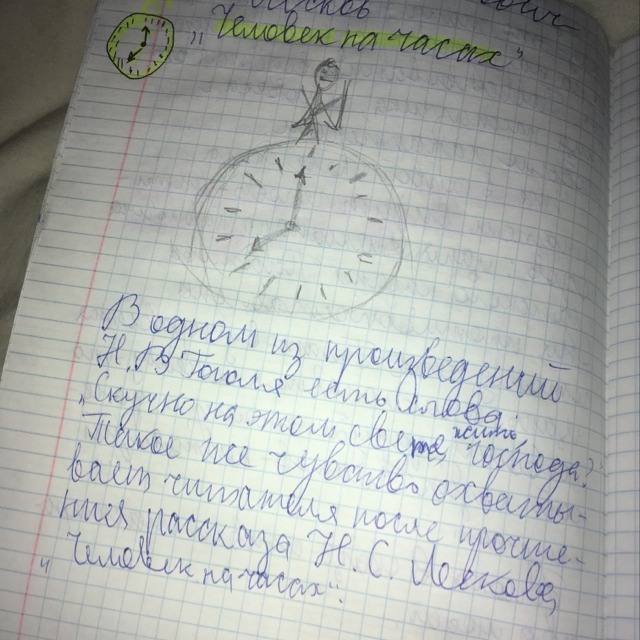 Лесков
„Человек на часах"
В одном из произведений
Н.В Гоголя есть слова
„Скучно на этом свете жить господа".
Такое же чувство охваты-
вает читателя после прочте-
ния рассказа Н. С. Лескова,
„Человек на часах".